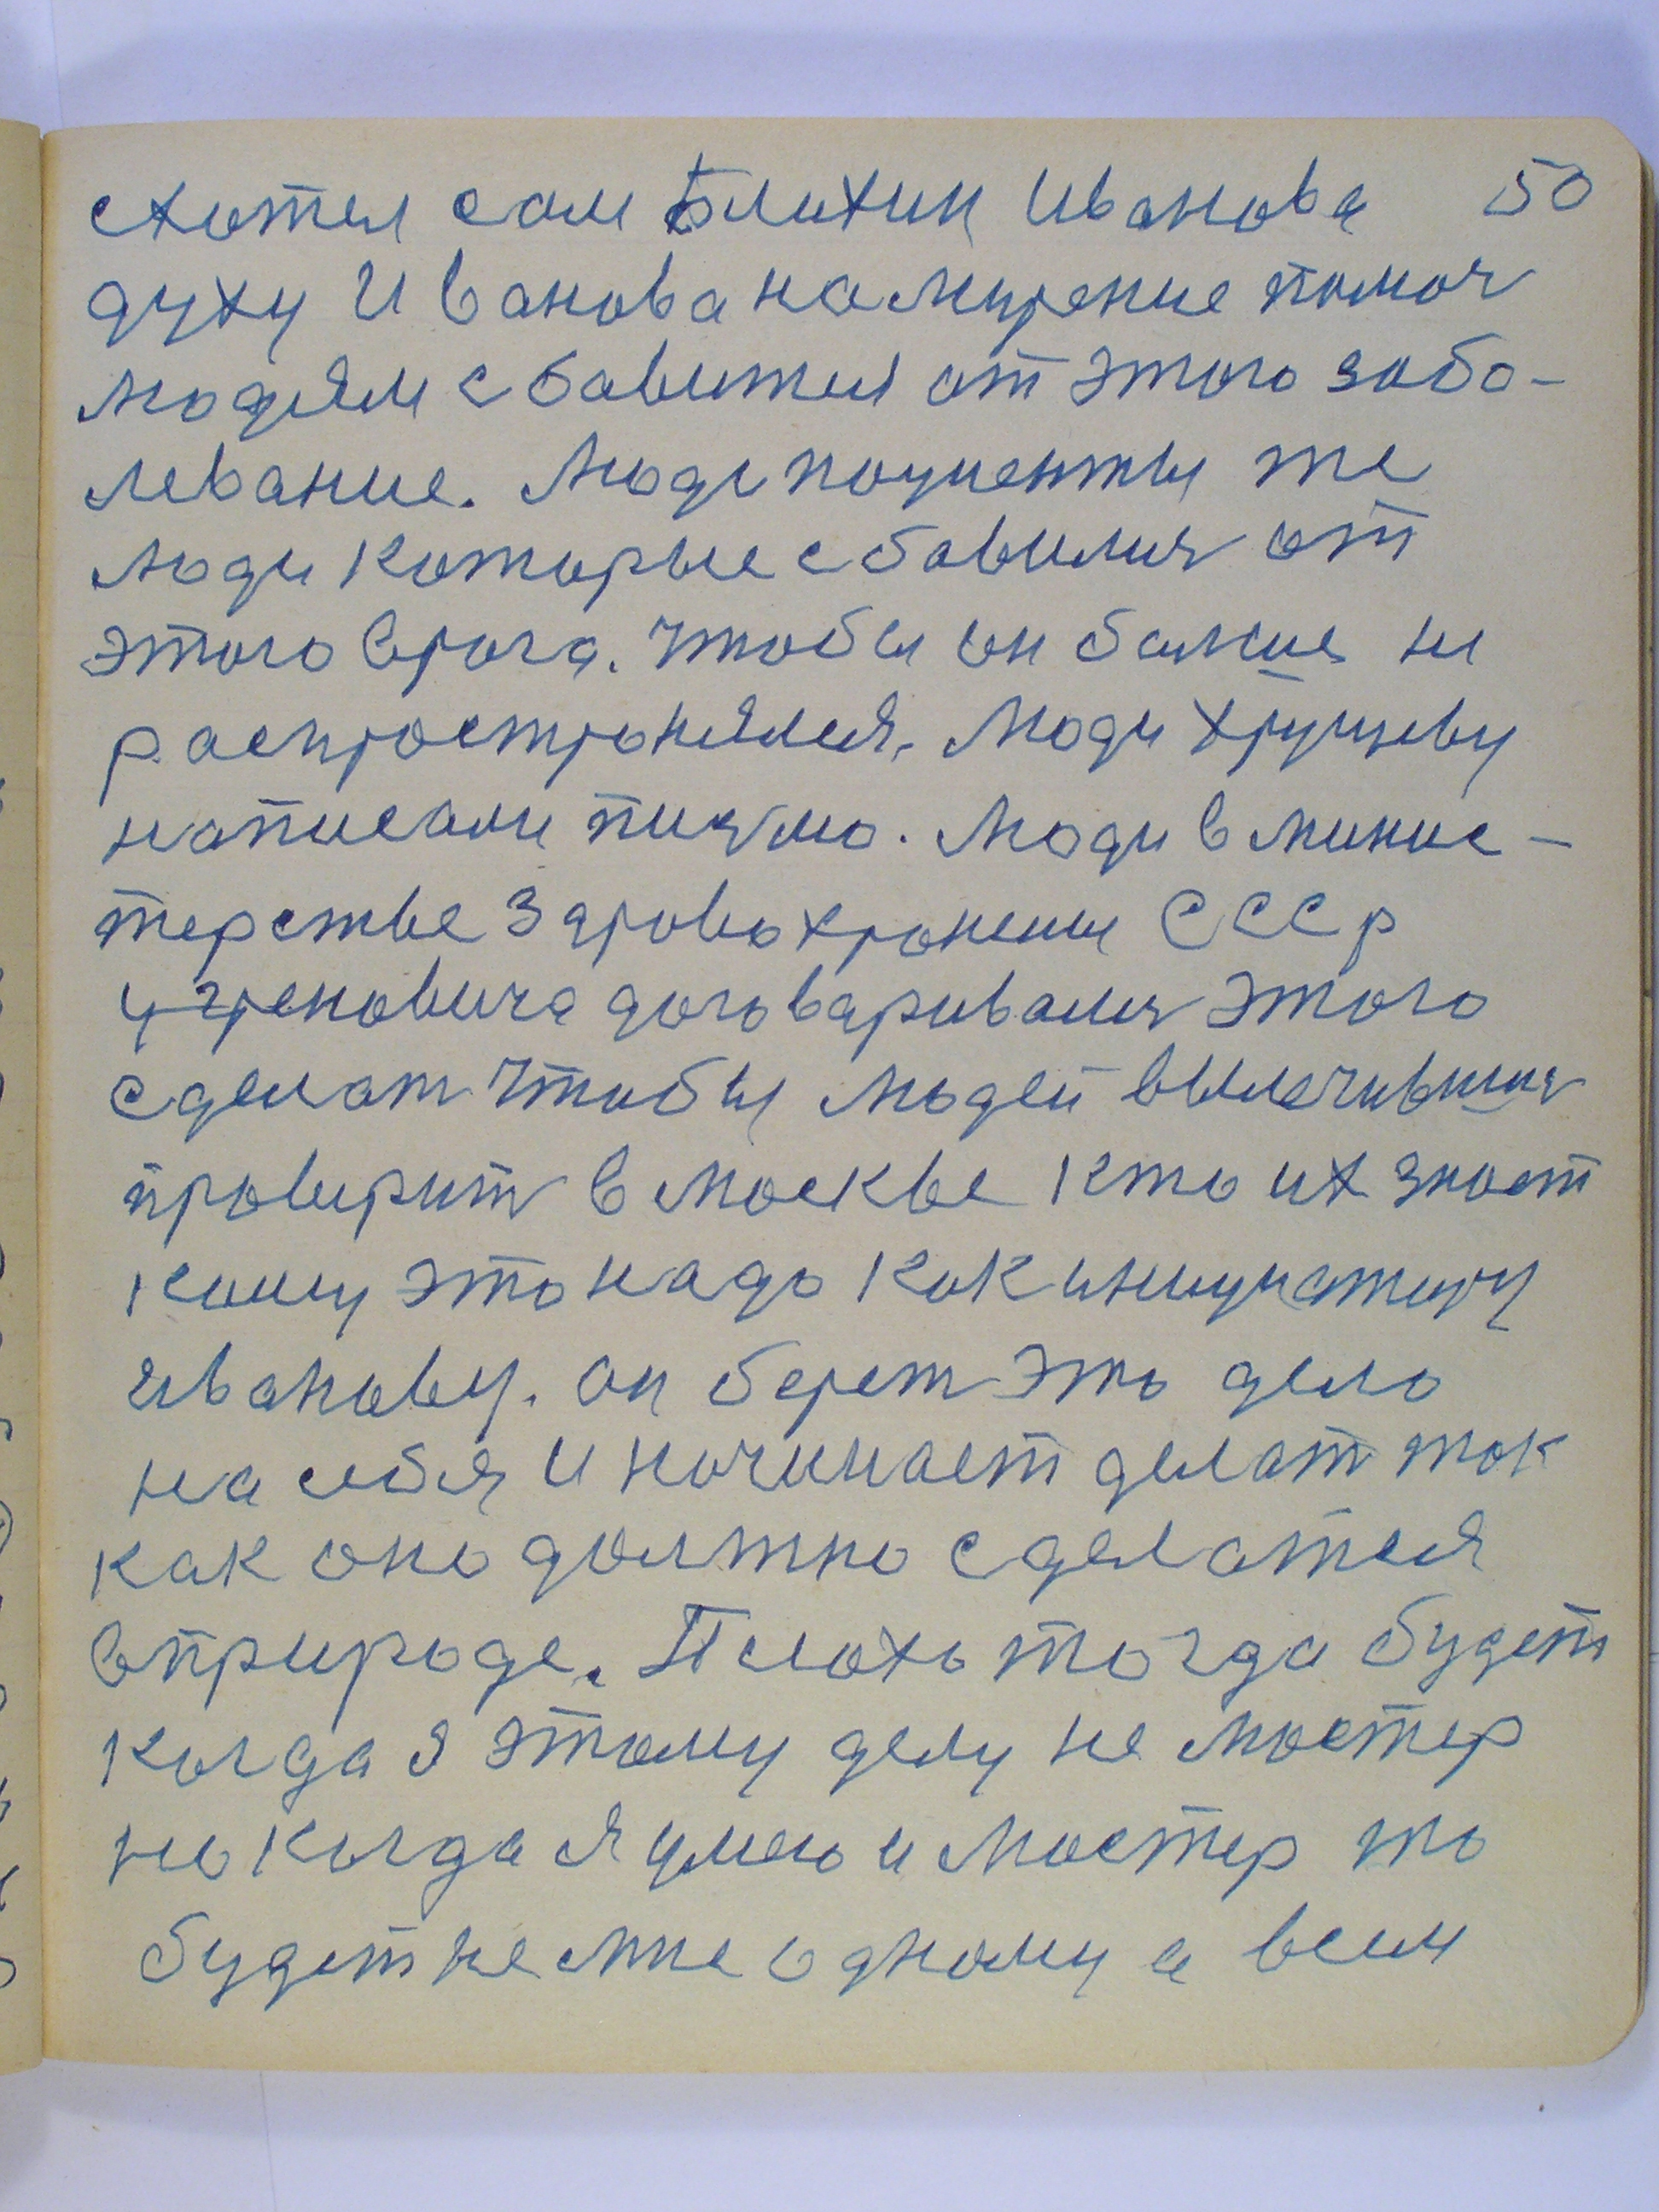 схотел сам Блихин Иванова 50
духу Иванова намирение помоч
людям сбавится от этого забо-
левание. Люди поциенты те
люди которые сбавился от
этого врага. Чтобы он балше не
распространялся. Люди Хрущеву
написали писмо. Люди в минис-
терстве Здровохронения СССР
у Греновича договаривался этого
сделат чтобы людей вылечивших
проверит в москве кто их знает
кому это надо как иницатору
Иванову. он берет это дело
на себя и начинает делат так
как оно должно сделатся
в природе. Плохо тогда будет
когда я этому делу не мастер
но когда я умею и мастер то
будет не мне одному а всем